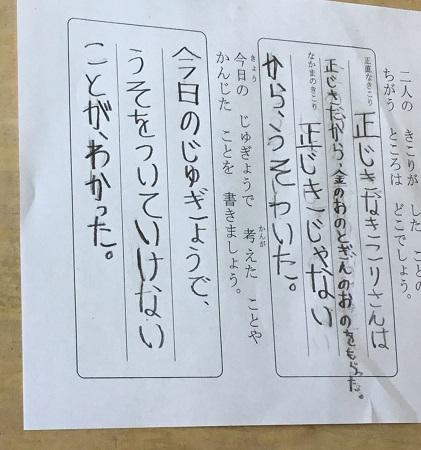 二人の きこりが した ことの
ちがう ところは どこでしょう。
正直なきこり
正じきなきこりさんは
正じきだから、金のおのとぎんのおのをもらった。
なかまのきこり
正じきじゃない
から、うそついた。
今日の じゅぎょうで 考えた ことや
きょう
かんが
かんじた ことを 書きましょう。
今日のじゅぎょうで、
うそをついていけない
ことが、わかった。